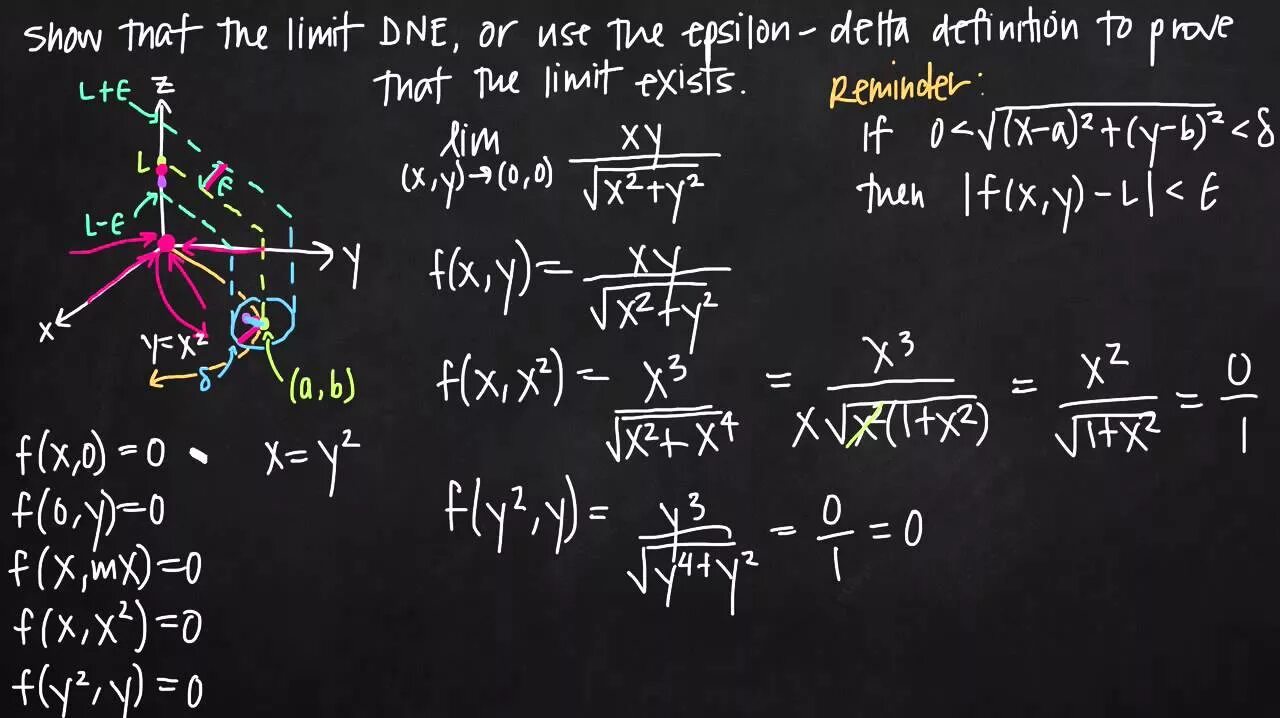 show that the limit DNE, or use the epsilon-delta definition to prove
that the limit exists.
Reminder:
If 0<√((x-a)²+(y-b)²)<δ
then |f(x,y)-L|<ε
lim (x,y)→(0,0) xy/√(x²+y²)
f(x,y)=xy/√(x²+y²)
f(x,x²)=x³/√(x²+x⁴) = x³/(x√(x²(1+x²))) = x²/√(1+x²) = 0/1
f(y²,y)=y³/√(y⁴+y²) = 0/1 = 0
z
L+ε
L
ε
L-ε
y
x
y=x²
δ
(a,b)
f(x,0)=0
x=y²
f(0,y)=0
f(x,mx)=0
f(x,x²)=0
f(y²,y)=0